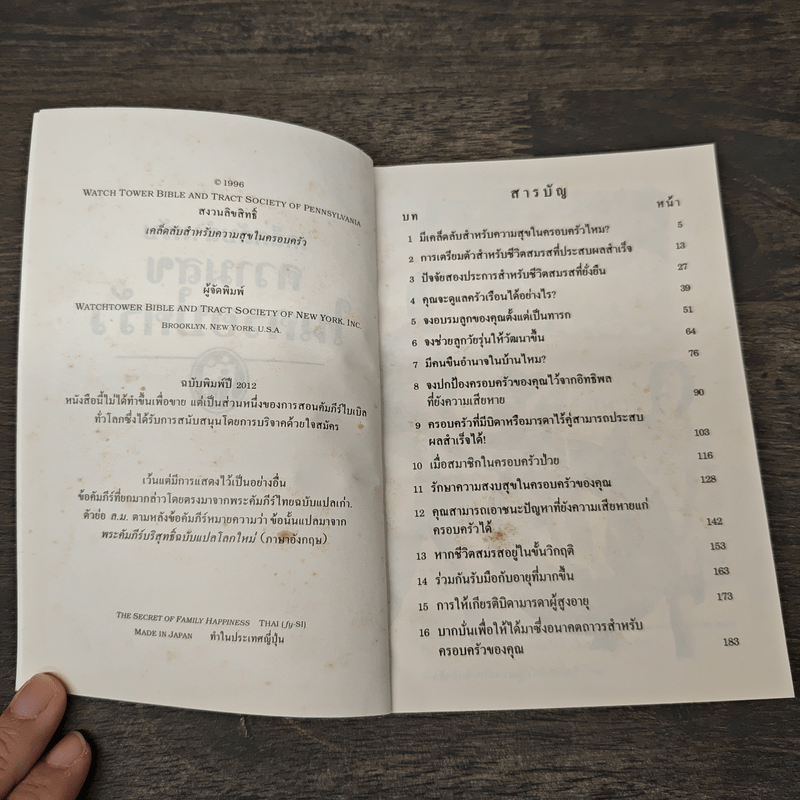 © 1996
WATCH TOWER BIBLE AND TRACT SOCIETY OF PENNSYLVANIA
สงวนลิขสิทธิ์
เคล็ดลับสำหรับความสุขในครอบครัว
ผู้จัดพิมพ์
WATCHTOWER BIBLE AND TRACT SOCIETY OF NEW YORK, INC.
BROOKLYN, NEW YORK, U.S.A.
ฉบับพิมพ์ปี 2012
หนังสือนี้ไม่ได้ทำขึ้นเพื่อขาย แต่เป็นส่วนหนึ่งของการสอนคัมภีร์ไบเบิล
ทั่วโลกซึ่งได้รับการสนับสนุนโดยการบริจาคด้วยใจสมัคร
เว้นแต่มีการแสดงไว้เป็นอย่างอื่น
ข้อคัมภีร์ที่ยกมากล่าวโดยตรงมาจากพระคัมภีร์ไทยฉบับแปลเก่า.
ตัวย่อ ล.ม. ตามหลังข้อคัมภีร์หมายความว่า ข้อนั้นแปลมาจาก
พระคัมภีร์บริสุทธิ์ฉบับแปลโลกใหม่ (ภาษาอังกฤษ)
THE SECRET OF FAMILY HAPPINESS THAI (fy-SI)
MADE IN JAPAN ทำในประเทศญี่ปุ่น
สารบัญ
บท หน้า
1 มีเคล็ดลับสำหรับความสุขในครอบครัวไหม? 5
2 การเตรียมตัวสำหรับชีวิตสมรสที่ประสบผลสำเร็จ 13
3 ปัจจัยสองประการสำหรับชีวิตสมรสที่ยั่งยืน 27
4 คุณจะดูแลครัวเรือนได้อย่างไร? 39
5 จงอบรมลูกของคุณตั้งแต่เป็นทารก 51
6 จงช่วยลูกวัยรุ่นให้วัฒนาขึ้น 64
7 มีคนขืนอำนาจในบ้านไหม? 76
8 จงปกป้องครอบครัวของคุณไว้จากอิทธิพล
ที่ยังความเสียหาย 90
9 ครอบครัวที่มีบิดาหรือมารดาไร้คู่สามารถประสบ
ผลสำเร็จได้! 103
10 เมื่อสมาชิกในครอบครัวป่วย 116
11 รักษาความสงบสุขในครอบครัวของคุณ 128
12 คุณสามารถเอาชนะปัญหาที่ยังความเสียหายแก่
ครอบครัวได้ 142
13 หากชีวิตสมรสอยู่ในขั้นวิกฤติ 153
14 ร่วมกันรับมือกับอายุที่มากขึ้น 163
15 การให้เกียรติบิดามารดาผู้สูงอายุ 173
16 บากบั่นเพื่อให้ได้มาซึ่งอนาคตถาวรสำหรับ
ครอบครัวของคุณ 183